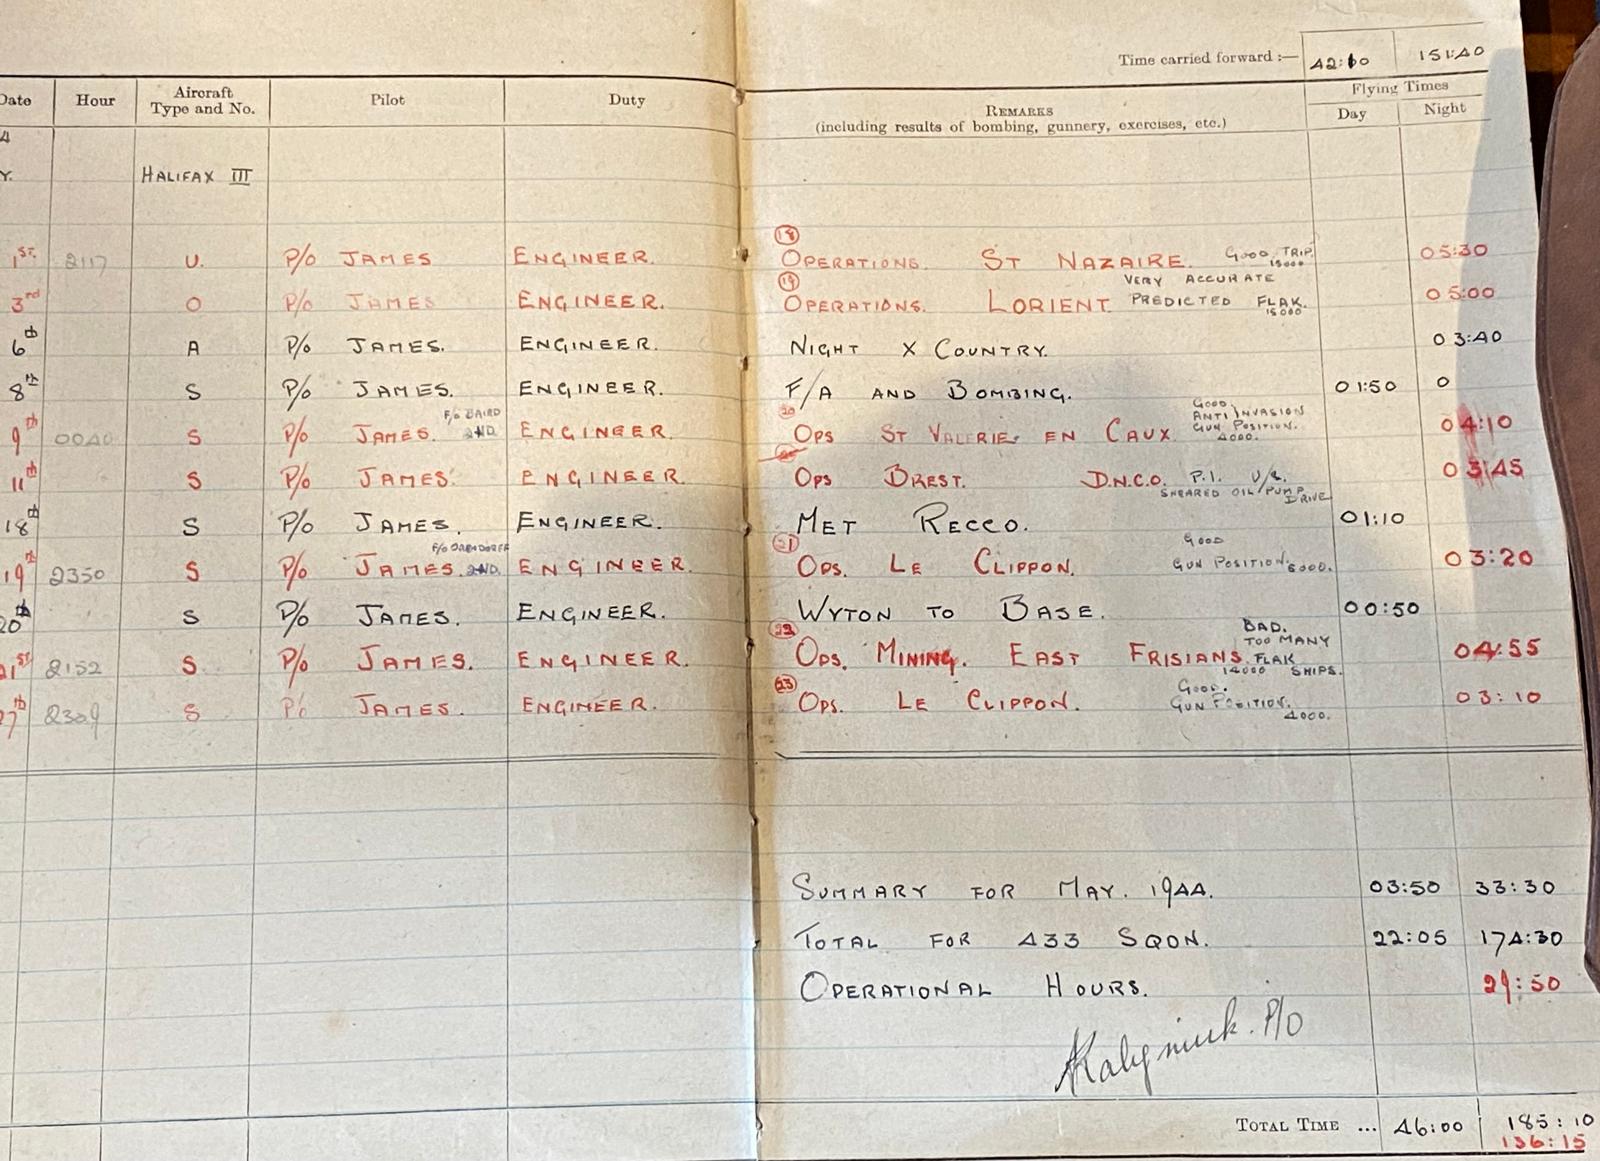 Time carried forward :— 42:10 151:40
Date Hour Aircraft Type and No. Pilot Duty REMARKS (including results of bombing, gunnery, exercises, etc.) Flying Times Day Night
4
Y. HALIFAX III
1ST. 2117 U. P/O JAMES ENGINEER. (18) OPERATIONS. ST NAZAIRE. GOOD TRIP. 15000 05:30
3rd O P/O JAMES ENGINEER. (19) OPERATIONS. LORIENT. VERY ACCURATE PREDICTED FLAK. 15000 05:00
6th A P/O JAMES. ENGINEER. NIGHT X COUNTRY. 03:40
8th S P/O JAMES. ENGINEER. F/A AND BOMBING. 01:50 0
9th 0040 S P/O JAMES. F/O BAIRD 2ND. ENGINEER. (20) OPS ST VALERIE EN CAUX. GOOD. ANTI INVASION GUN POSITION. 4000. 04:10
11th S P/O JAMES. ENGINEER. OPS BREST. D.N.C.O. P.I. U/S. SHEARED OIL/PUMP DRIVE 03:45
18th S P/O JAMES. ENGINEER. MET RECCO. 01:10
19th 2350 S P/O JAMES. 2ND. ENGINEER. (21) OPS. LE CLIPPON. GOOD GUN POSITION. 6000. 03:20
20th S P/O JAMES. ENGINEER. WYTON TO BASE. 00:50
21ST 2152 S. P/O JAMES. ENGINEER. (22) OPS. MINING. EAST FRISIANS. BAD. TOO MANY FLAK SHIPS. 14000 04:55
27th 2309 S P/O JAMES. ENGINEER. (23) OPS. LE CLIPPON. GOOD. GUN POSITION. 4000. 03:10
SUMMARY FOR MAY. 1944. 03:50 33:30
TOTAL FOR 433 SQDN. 22:05 174:30
OPERATIONAL HOURS. 29:50
P/O
TOTAL TIME ... 46:00 185:10
136:15